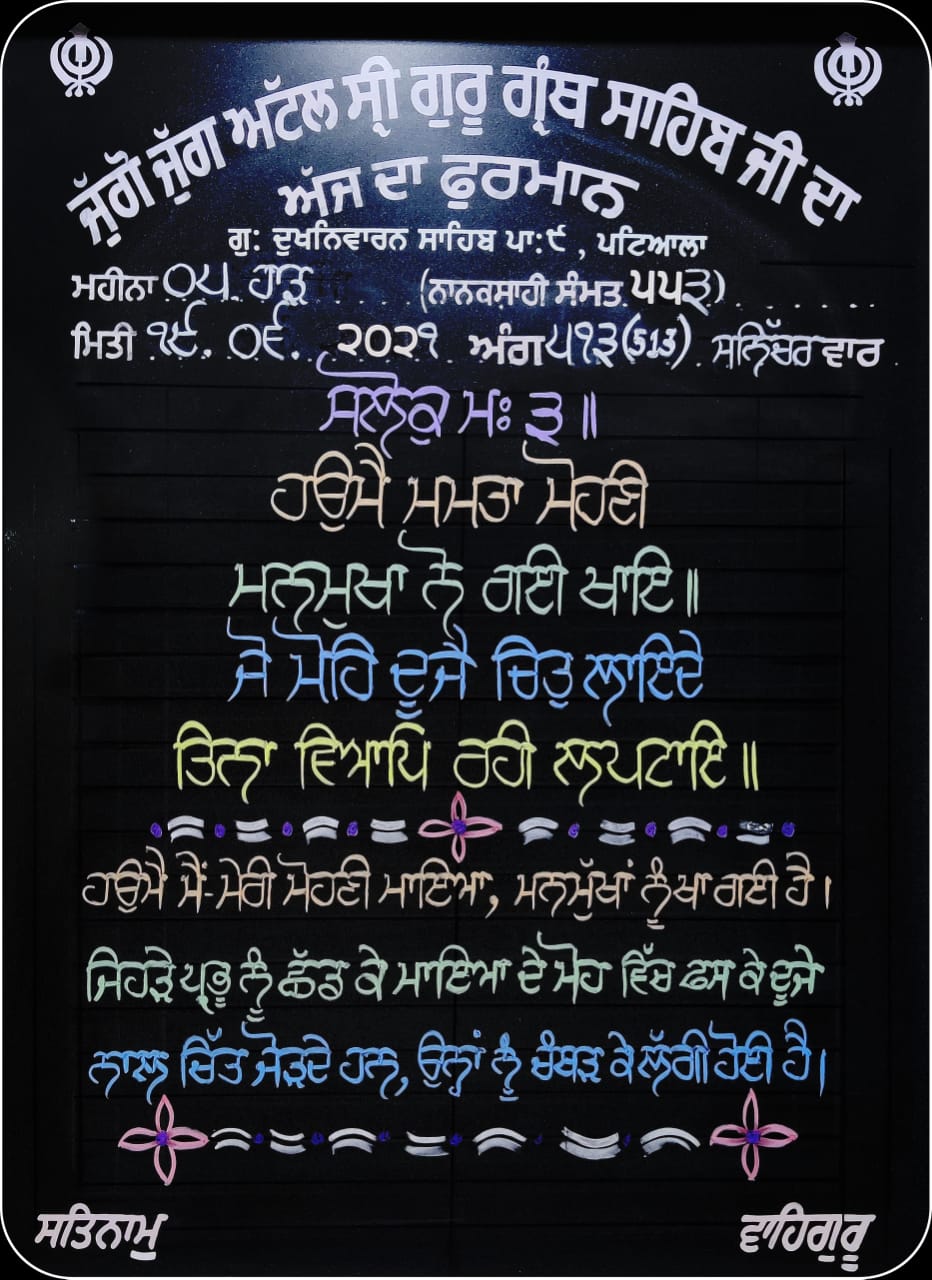 ਜੁੱਗੋ ਜੁੱਗ ਅੱਟਲ ਸ੍ਰੀ ਗੁਰੂ ਗ੍ਰੰਥ ਸਾਹਿਬ ਜੀ ਦਾ
ਅੱਜ ਦਾ ਫੁਰਮਾਨ
ਗੁ: ਦੁਖਨਿਵਾਰਨ ਸਾਹਿਬ ਪਾ:੯ , ਪਟਿਆਲਾ
ਮਹੀਨਾ ੦੫ ਹਾੜ (ਨਾਨਕਸਾਹੀ ਸੰਮਤ ੫੫੩)
ਮਿਤੀ ੧੯. ੦੬. ੨੦੨੧ ਅੰਗ ੫੧੩ (513) ਸਨਿੱਚਰ ਵਾਰ
ਸਲੋਕੁ ਮਃ ੩ ॥
ਹਉਮੈ ਮਮਤਾ ਮੋਹਣੀ
ਮਨਮੁਖਾ ਨੋ ਗਈ ਖਾਇ ॥
ਜੋ ਮੋਹਿ ਦੂਜੈ ਚਿਤੁ ਲਾਇਦੇ
ਤਿਨਾ ਵਿਆਪਿ ਰਹੀ ਲਪਟਾਇ ॥
ਹਉਮੈ ਮੈਂ-ਮੇਰੀ ਮੋਹਣੀ ਮਾਇਆ, ਮਨਮੁੱਖਾਂ ਨੂੰ ਖਾ ਗਈ ਹੈ ।
ਜਿਹੜੇ ਪ੍ਰਭੂ ਨੂੰ ਛੱਡ ਕੇ ਮਾਇਆ ਦੇ ਮੋਹ ਵਿੱਚ ਫਸ ਕੇ ਦੂਜੇ
ਨਾਲ ਚਿੱਤ ਜੋੜਦੇ ਹਨ, ਉਨ੍ਹਾਂ ਨੂੰ ਚੰਬੜ ਕੇ ਲੱਗੀ ਹੋਈ ਹੈ ।
ਸਤਿਨਾਮੁ ਵਾਹਿਗੁਰੂ